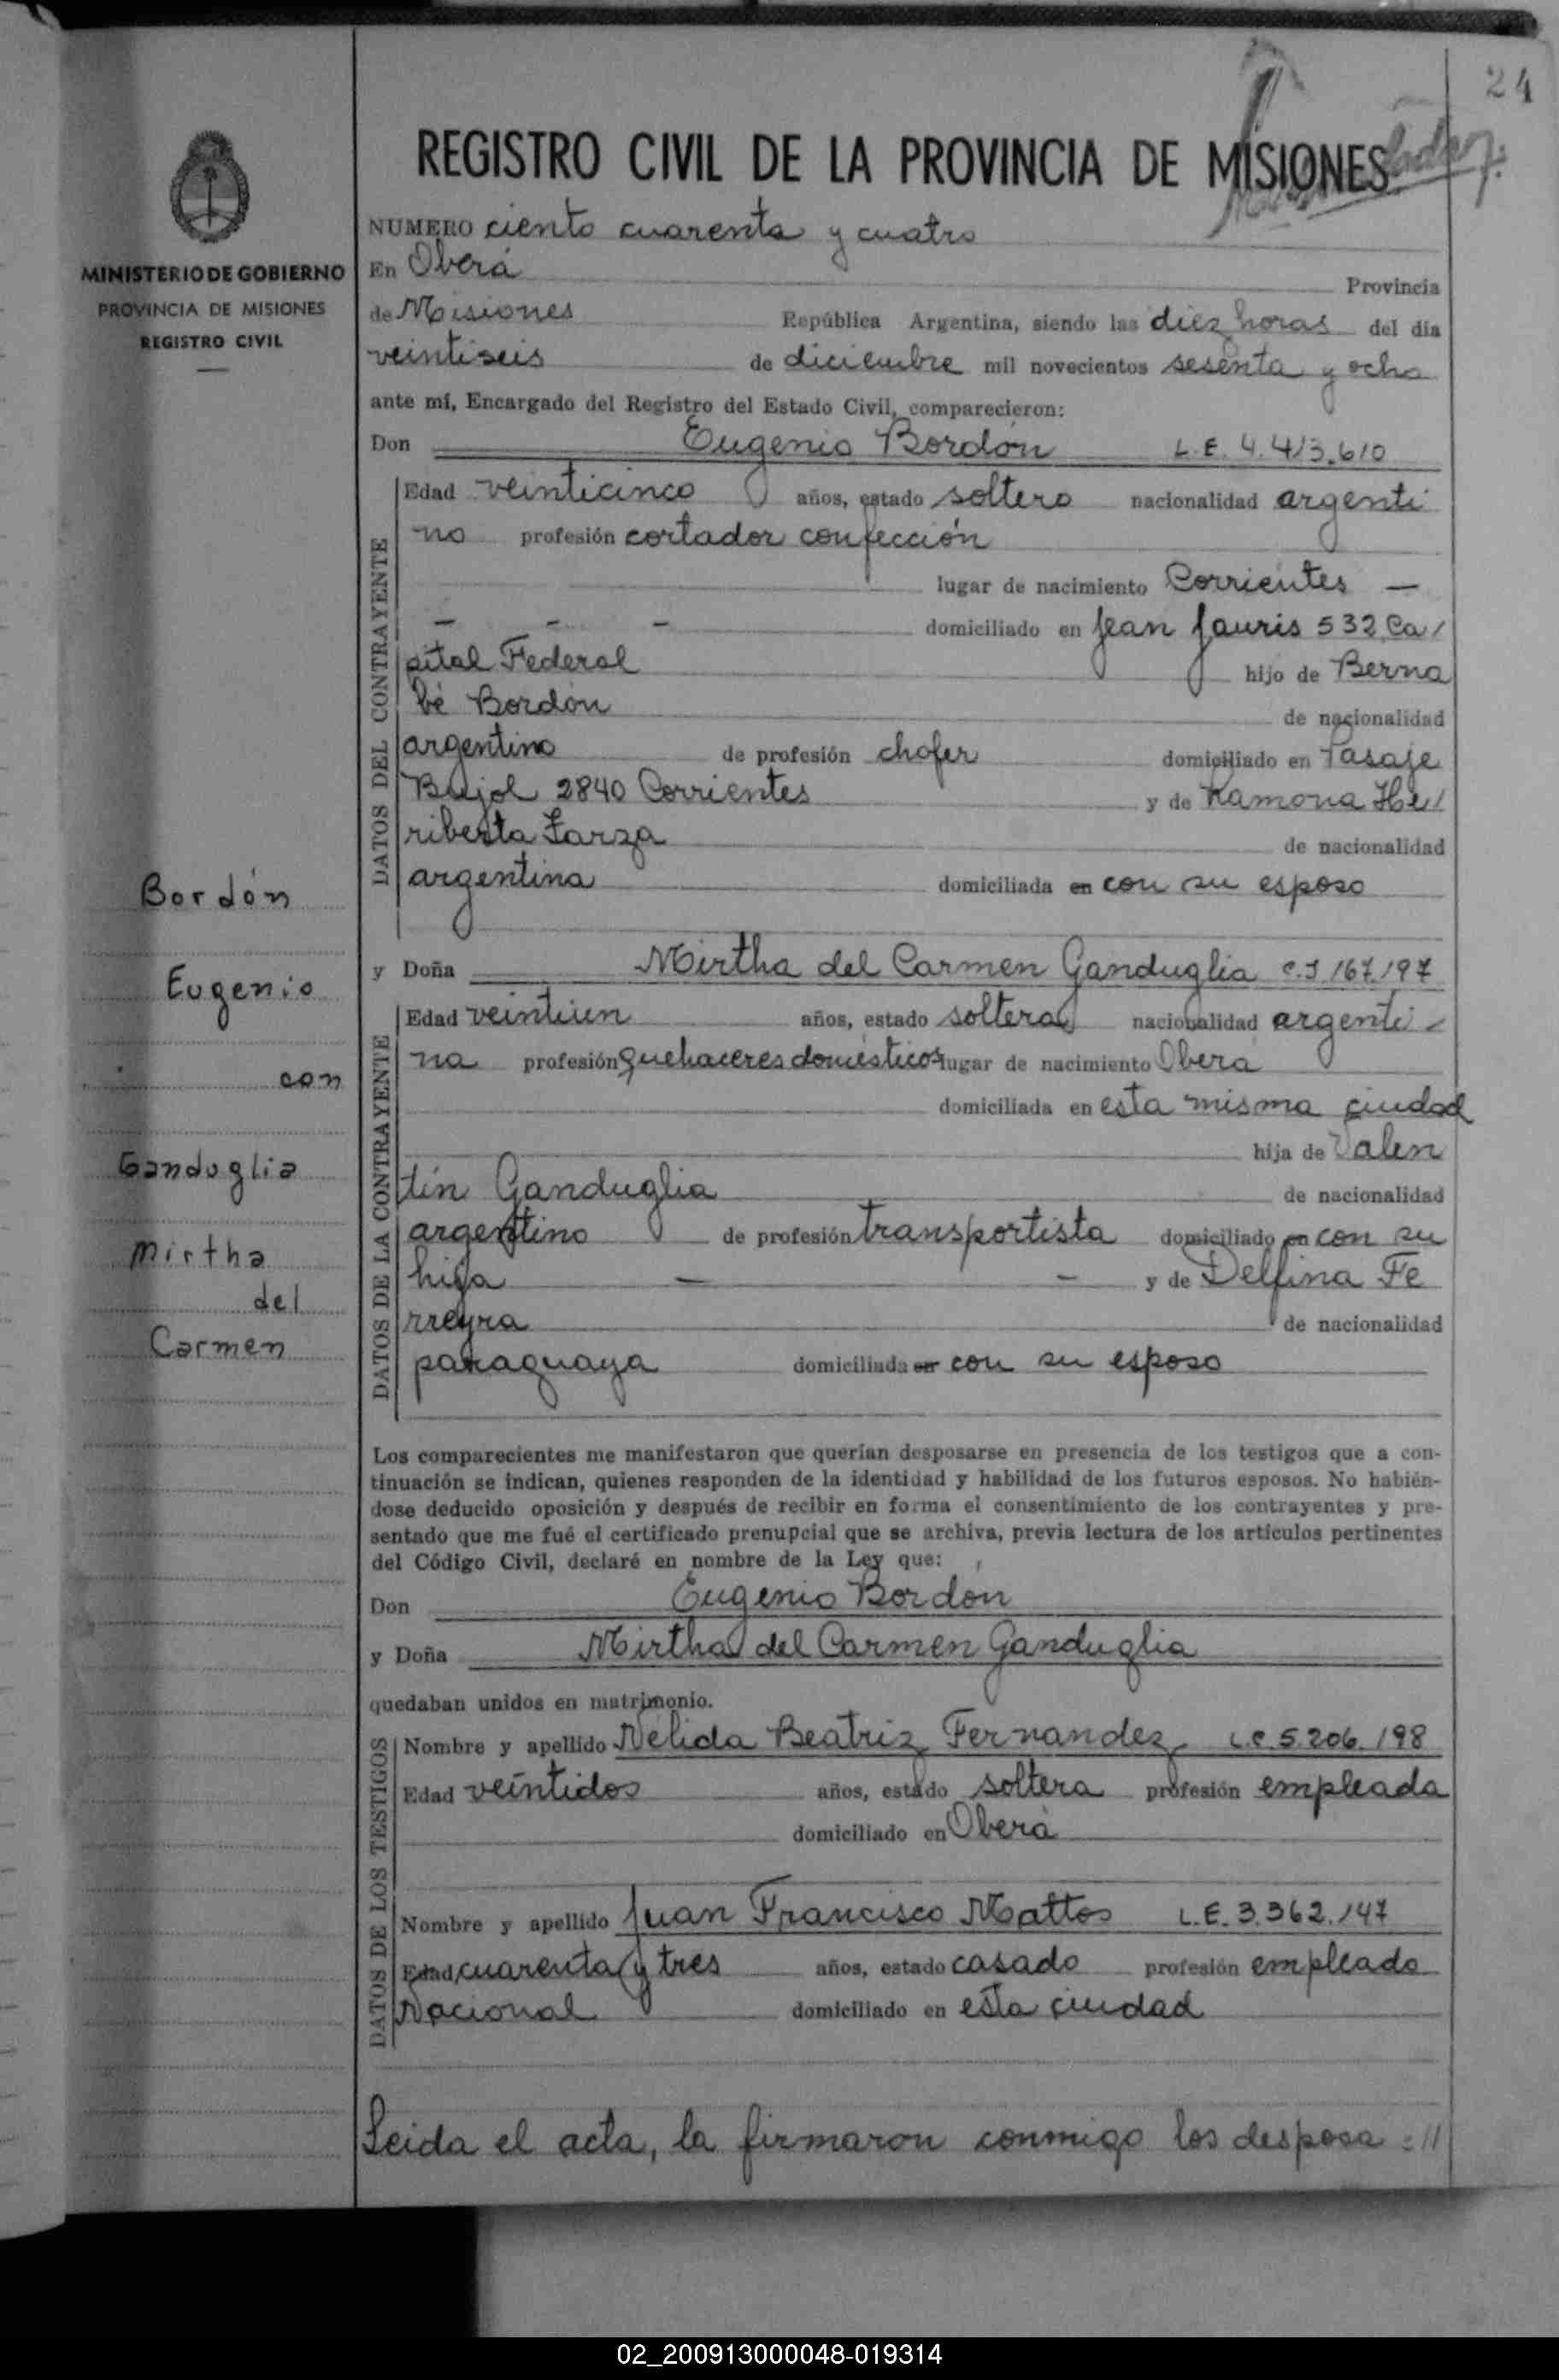 24
REGISTRO CIVIL DE LA PROVINCIA DE MISIONES
MINISTERIO DE GOBIERNO
PROVINCIA DE MISIONES
REGISTRO CIVIL
NUMERO ciento cuarenta y cuatro
En Oberá Provincia
de Misiones República Argentina, siendo las diez horas del día
veintiseis de diciembre mil novecientos sesenta y ocho
ante mí, Encargado del Registro del Estado Civil, comparecieron:
Don Eugenio Bordón L.E. 4.413.610
DATOS DEL CONTRAYENTE
Edad veinticinco años, estado soltero nacionalidad argenti
no profesión cortador confección
lugar de nacimiento Corrientes —
— — — domiciliado en Jean Jauris 532 Ca/
pital Federal hijo de Berna
bé Bordón de nacionalidad
argentino de profesión chofer domiciliado en Pasaje
Bujol 2840 Corrientes y de Ramona He/
riberta Zarza de nacionalidad
argentina domiciliada en con su esposo
y Doña Mirtha del Carmen Ganduglia C.I 167.197
DATOS DE LA CONTRAYENTE
Edad veintiun años, estado soltera nacionalidad argenti-
na profesión quehaceres domésticos lugar de nacimiento Oberá
domiciliada en esta misma ciudad
hija de Valen
tín Ganduglia de nacionalidad
argentino de profesión transportista domiciliado en con su
hija — — y de Delfina Fe
rreyra de nacionalidad
paraguaya domiciliada en con su esposo
Bordón
Eugenio
con
Ganduglia
Mirtha
del
Carmen
Los comparecientes me manifestaron que querían desposarse en presencia de los testigos que a con-
tinuación se indican, quienes responden de la identidad y habilidad de los futuros esposos. No habién-
dose deducido oposición y después de recibir en forma el consentimiento de los contrayentes y pre-
sentado que me fué el certificado prenupcial que se archiva, previa lectura de los artículos pertinentes
del Código Civil, declaré en nombre de la Ley que:
Don Eugenio Bordón
y Doña Mirtha del Carmen Ganduglia
quedaban unidos en matrimonio.
DATOS DE LOS TESTIGOS
Nombre y apellido Nélida Beatriz Fernandez L.C. 5.206.198
Edad veintidos años, estado soltera profesión empleada
domiciliado en Oberá
Nombre y apellido Juan Francisco Mattos L.E. 3.362.147
Edad cuarenta y tres años, estado casado profesión empleado
Nacional domiciliado en esta ciudad
Leida el acta, la firmaron conmigo los desposa=//
02_200913000048-019314